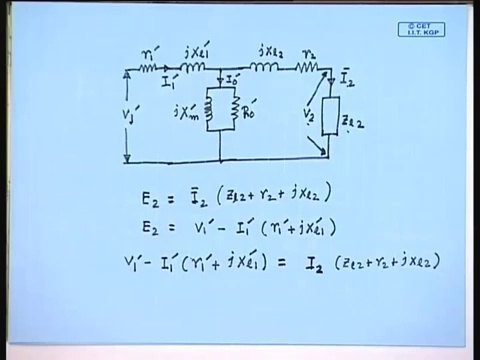 © CET
I.I.T. KGP
r₁′ jxl₁′ jxl₂ r₂
I₁′ I₀′ Ī₂
V₁′ jX′m R₀′ V₂ Zl₂
E₂ = Ī₂ (Zl₂ + r₂ + jxl₂)
E₂ = V₁′ − I₁′ (r₁′ + jxl₁′)
V₁′ − I₁′ (r₁′ + jxl₁′) = I₂ (Zl₂ + r₂ + jxl₂)